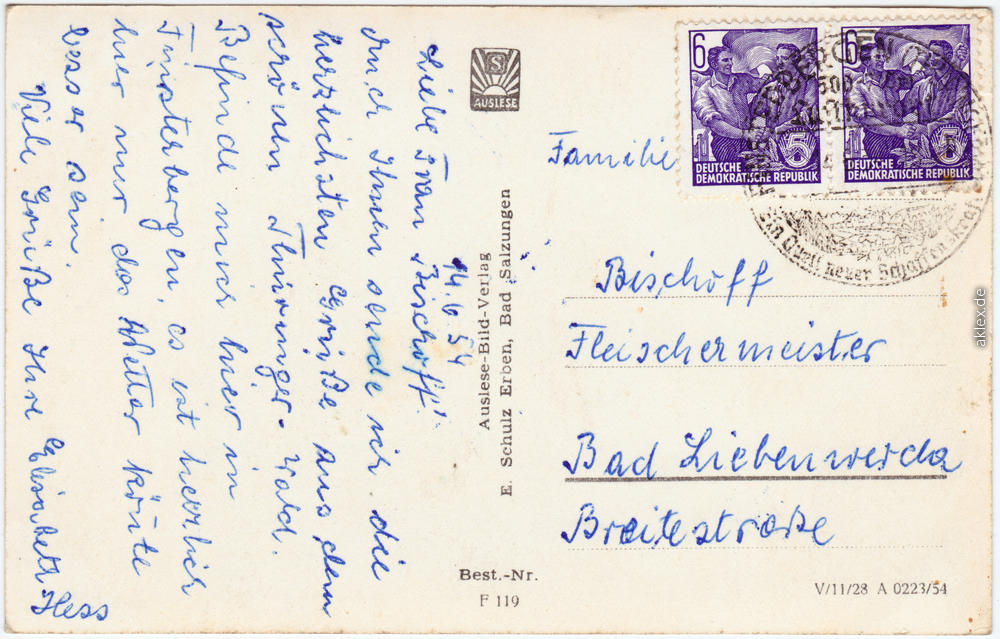 14.6.54
Liebe Frau Bischoff!
Auch Ihnen sende ich die
herzlichsten Grüße aus dem
schönen Thüringer-Wald.
Befinde mich hier in
Finsterbergen, es ist herrlich
hier nur das Wetter könnte
besser sein.
Viele Grüße Ihre Elisabeth Hess
S
AUSLESE
Auslese-Bild-Verlag
E. Schulz Erben, Bad Salzungen
Best.-Nr.
F 119
6
DEUTSCHE
DEMOKRATISCHE REPUBLIK
5
6
DEUTSCHE
DEMOKRATISCHE REPUBLIK
5
FINSTERBERGEN
500
Ein Quell neuer Schaffenskraft
Familie
Bischoff
Fleischermeister
Bad Liebenwerda
Breitestraße
V/11/28 A 0223/54
aklex.de